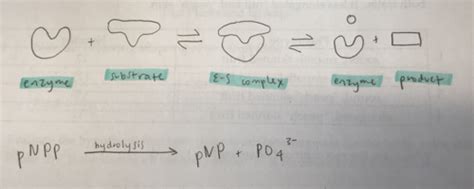 + ⇌ ⇌ +
enzyme substrate E-S complex enzyme product
pNPP hydrolysis → pNP + PO₄³⁻